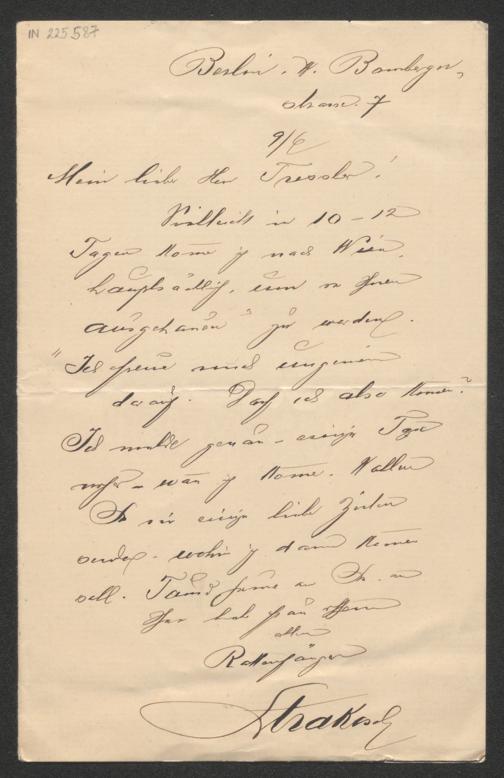 IN 225.587
Berlin. W. Bamberger
strasse. 7
9/6
Mein lieber Herr Tressler!
Vielleicht in 10-12
Tagen kome ich nach Wien,
hauptsächlich, um von Ihnen
ausgehauen zu werden.
"Ich freue mich ungemein
darauf. Darf ich also komen?
Ich melde genau - einige Tage
vorher - wan ich kome. Wollen
Sie mir einige liebe Zeilen
senden - wohin ich dann komen
soll. Tausend an Sie
Ihre liebe Frau Ihren
alten
Rattenfänger
Strakosch